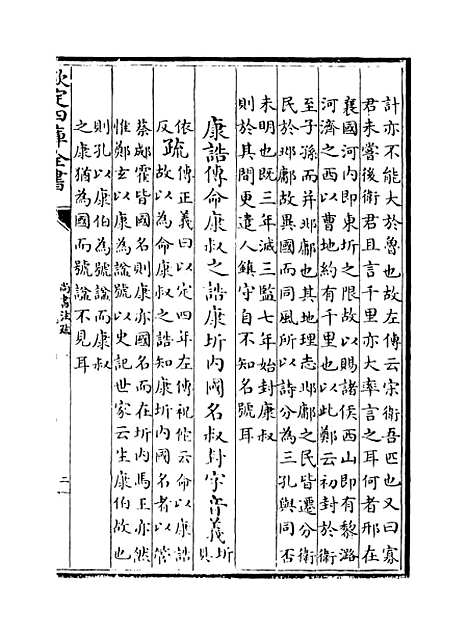 計亦不能大於魯也故左傳云宋衛吾匹也又曰寡
君未嘗後衛君且言千里亦大率言之耳何者邢在
襄國河内即東圻之限故以賜諸侯西山即有黎潞
河濟之西以曹地約有千里也以此鄭云初封於衛
至子孫而并邶鄘也其地理志邶鄘之民皆遷分衛
民於邶鄘故異國而同風所以詩分為三孔與同否
未明也既三年滅三監七年始封康叔
則於其間更遣人鎮守自不知名號耳
康誥傳命康叔之誥康圻内國名叔封字音義圻具
依反疏傳正義曰以定四年左傳祝佗云命以康誥
故以為命康叔之誥知康圻内國名者以管
蔡郕霍皆國名則康亦國名而在圻内馬王亦然
惟鄭玄以康為諡號以史記世家云生康伯故也
則孔以康伯為號諡而康叔
之康猶為國而號諡不見耳
欽定四庫全書
尚書注疏
二